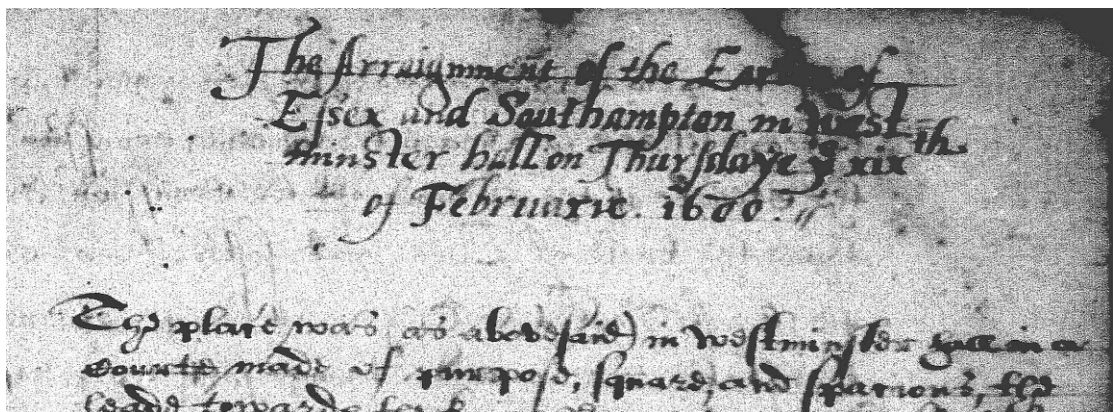 The Arraignment of the Earles of
Essex and Southampton in West
minster hall on Thursdaye yͤ xixᵗʰ
of Februarie. 1600.
The place was as abovesaid) in westminster hall in a
Courte made of purpose, square, and spatious, the
leade towards